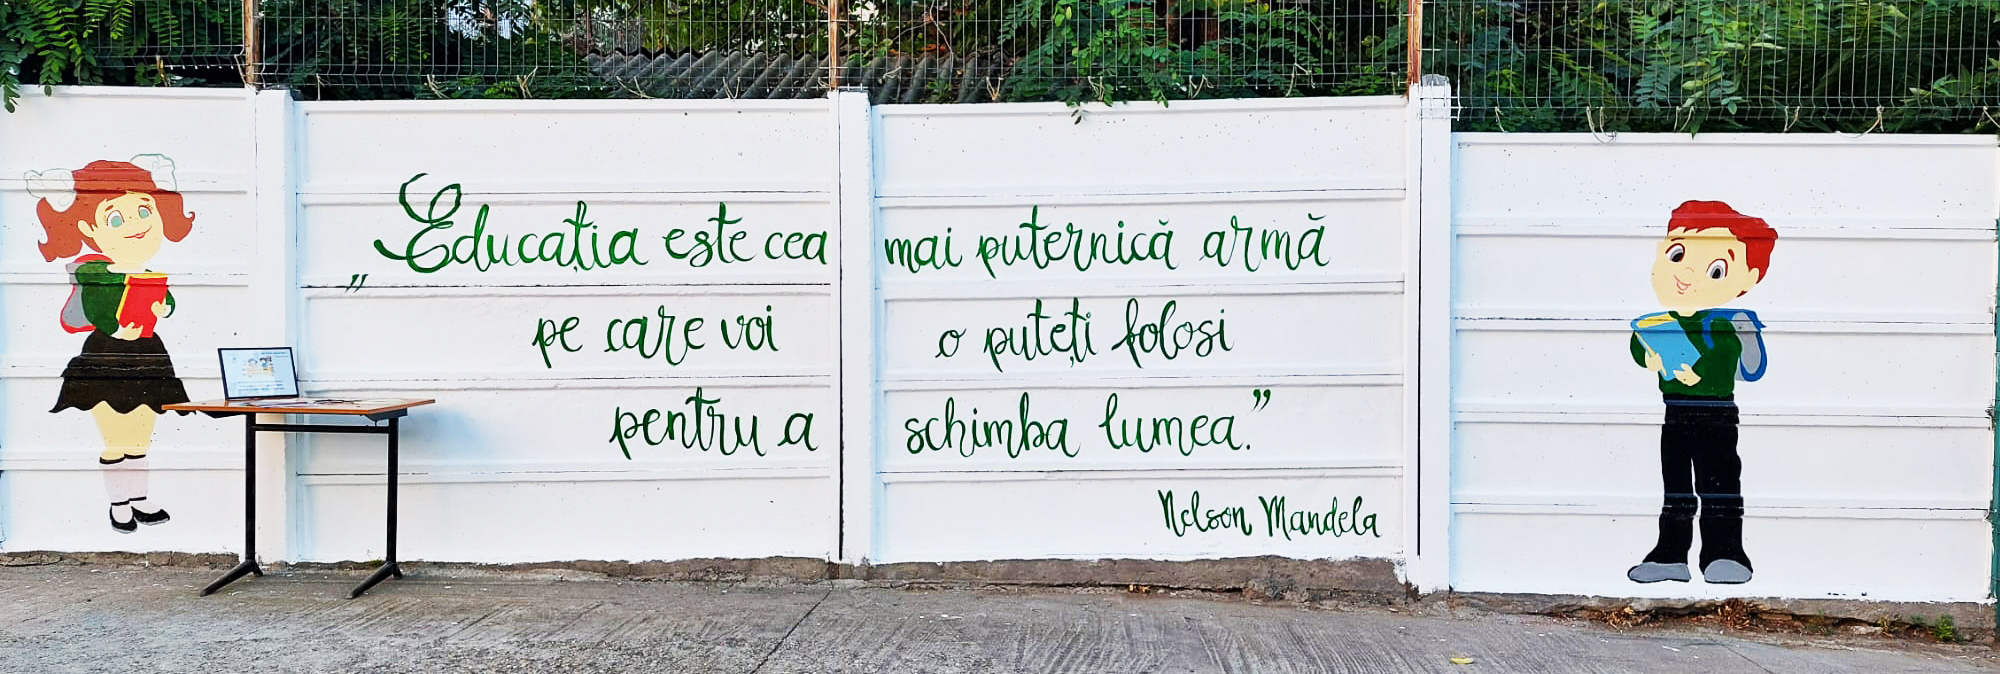 „Educația este cea mai puternică armă
pe care voi o puteți folosi
pentru a schimba lumea.”
Nelson Mandela